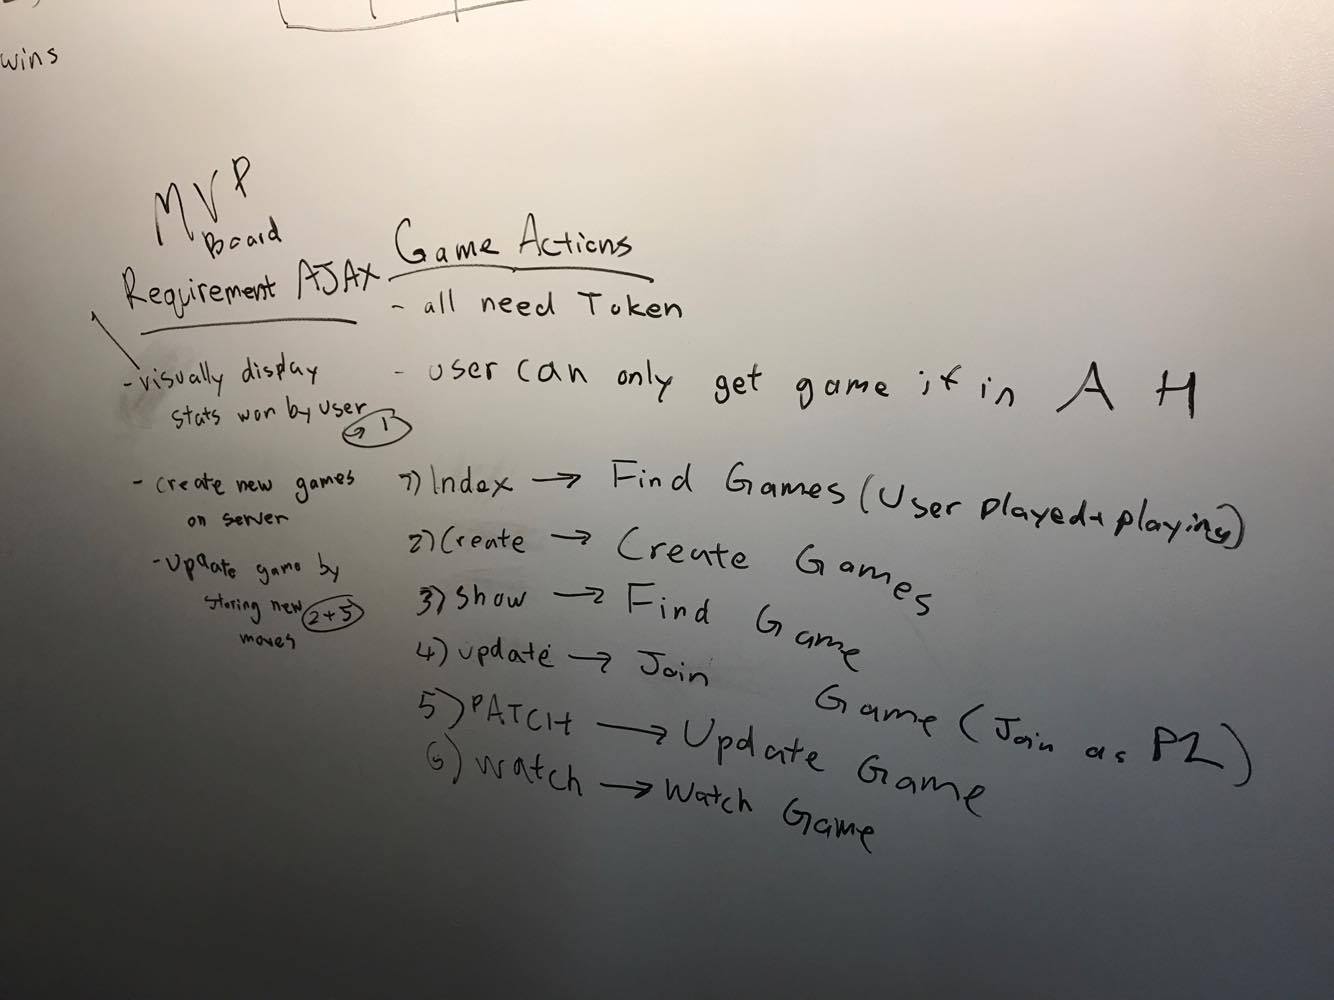 wins
MVP
Board
Requirement AJAX
- visually display
stats won by user
→ 1
- create new games
on server
- update game by
storing new 2+5
moves
Game Actions
- all need Token
- user can only get game if in A H
1) Index → Find Games (User played + playing)
2) Create → Create Games
3) Show → Find Game
4) update → Join Game (Join as P2)
5) PATCH → Update Game
6) Watch → Watch Game